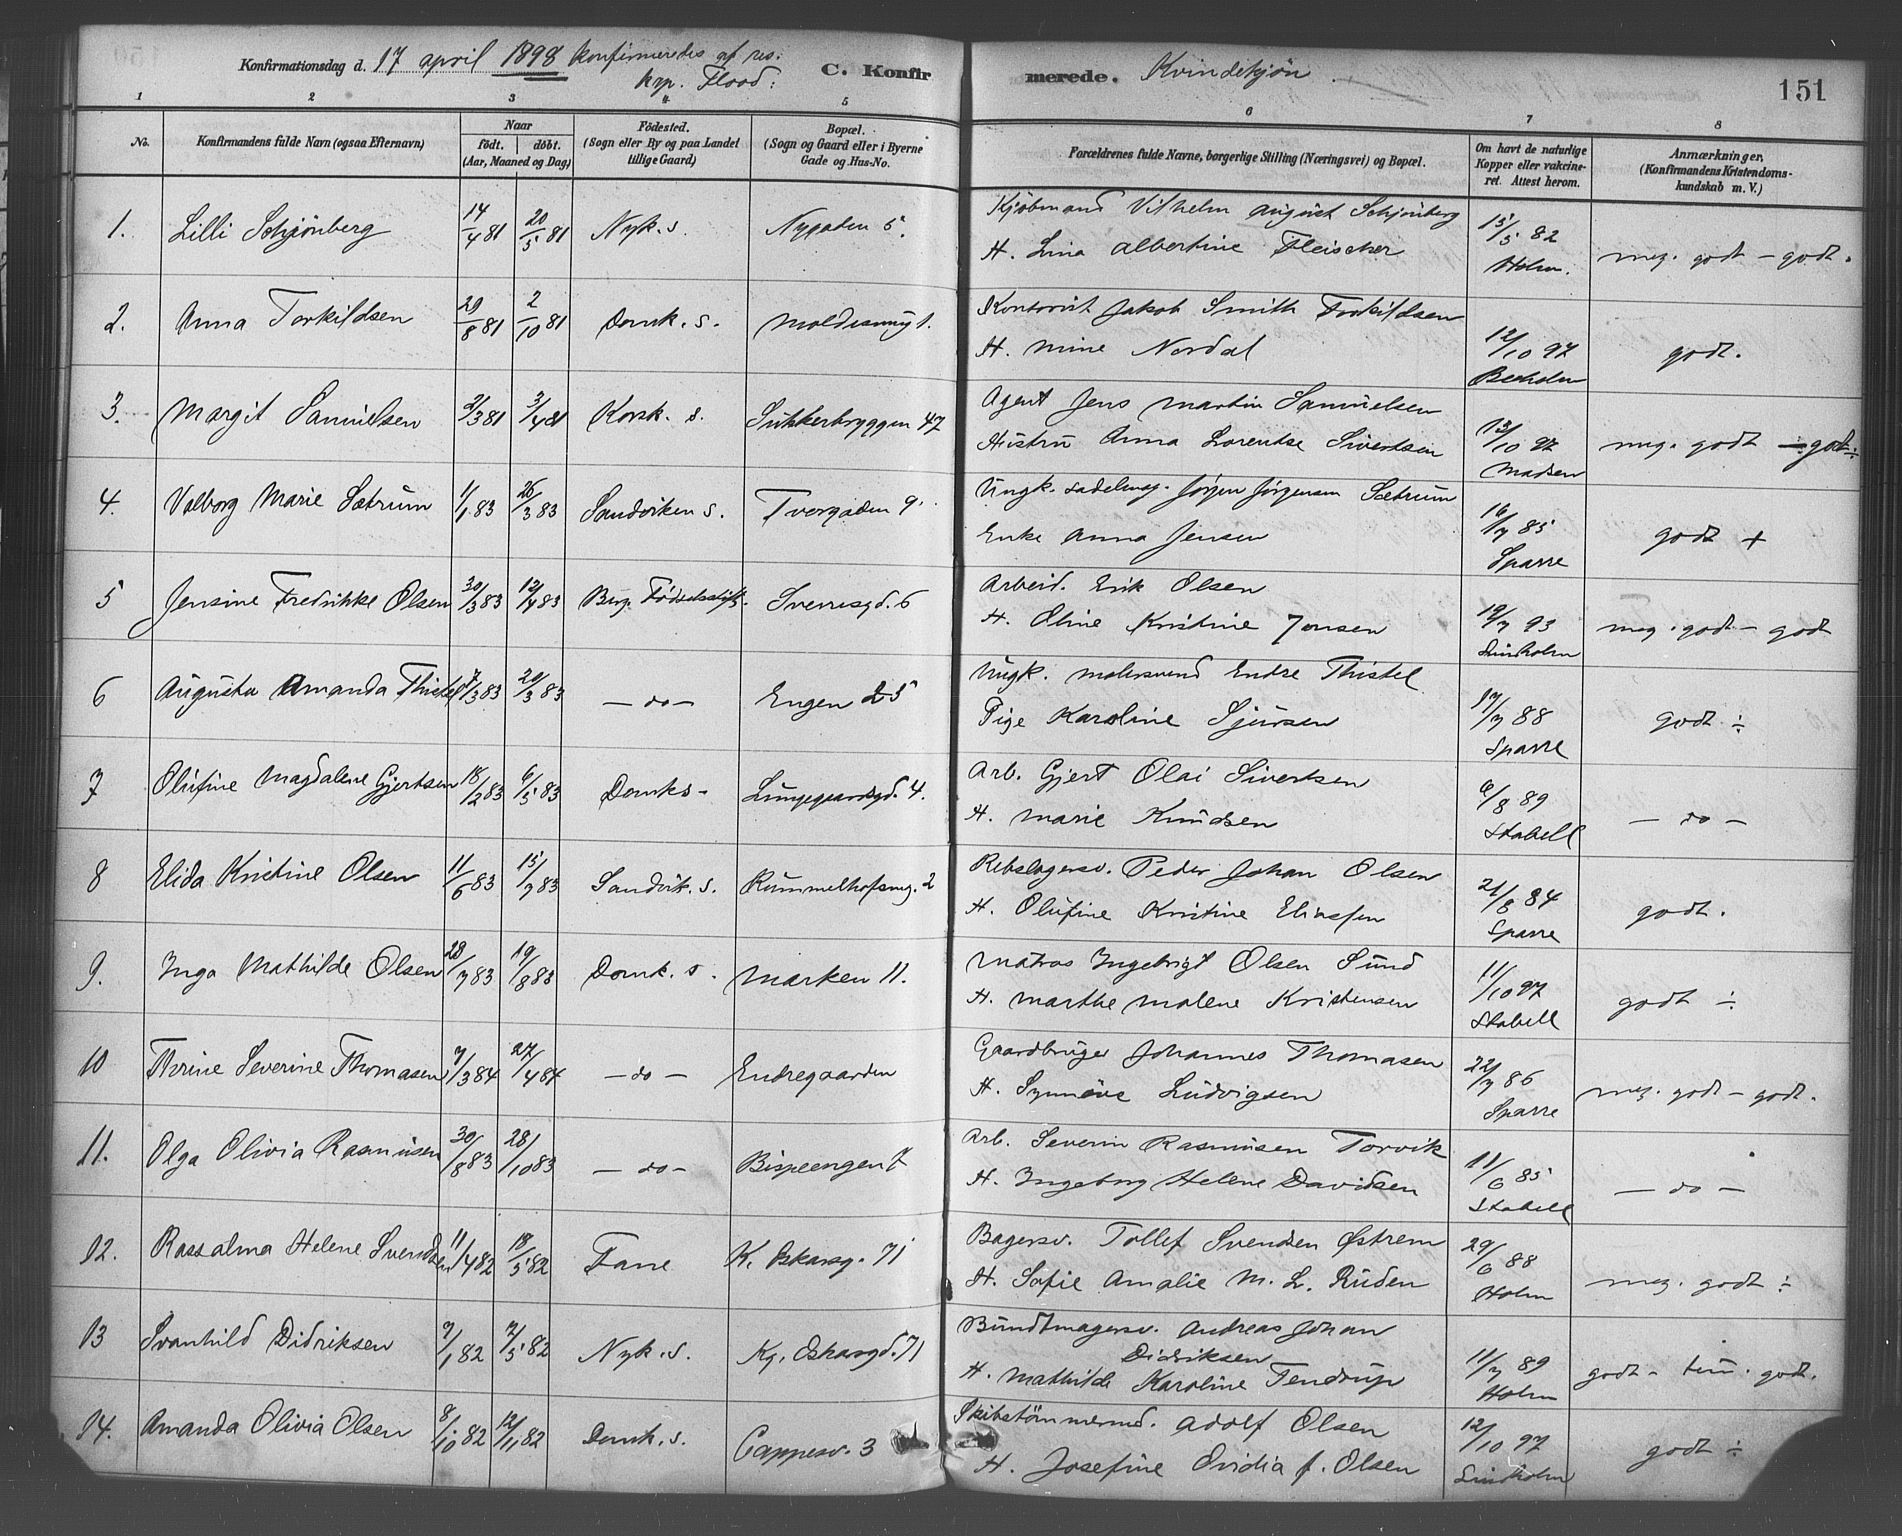 Konfirmationsdag d. 17 april 1898 konfirmeredes af res: kap. Flood:
C. Konfirmerede. Kvindekjøn
151
1 2 3 4 5 6 7 8
No. Konfirmandens fulde Navn (ogsaa Efternavn) Naar født. døbt. (Aar, Maaned og Dag) Fødested. (Sogn eller By og paa Landet tillige Gaard) Bopæl. (Sogn og Gaard eller i Byerne Gade og Hus-No. Forældrenes fulde Navne, borgerlige Stilling (Næringsvei) og Bopæl. Om havt de naturlige Kopper eller vakcineret. Attest herom. Anmærkninger. (Konfirmandens Kristendomskundskab m. V.)
1. Lilli Schjønberg 14/4 81 20/5 81 Nyk. s. Nygaden 5. Kjøbmand Vilhelm August Schjønberg 15/5 82 meg. godt - godt.
H. Lina Albertine Fleischer Holm.
2. Anna Torkildsen 29/8 81 2/10 81 Domk. s. Kontorist Jakob Smith Torkildsen 12/10 97 godt.
H. Mine Nordal
3. Margit Samuelsen 2/3 81 3/4 81 Korsk. s. Sukkerbryggen 47 Agent Jens Martin Samuelsen 13/10 97 meg. godt - godt ÷
Hustru Anna Lorentse Sivertsen Madsen
4. Valborg Marie Sætrum 1/1 83 26/3 83 Sandviken s. Tvergaden 9. Ungk. sadelmag. Jørgen Jørgensen Sætrum 16/7 85 godt +
Enke Anna Jensen Sparre
5 Jensine Fredrikke Olsen 30/3 83 12/4 83 Berg. Fødselsstift. Sverresgd. 6 Arbeid. Erik Olsen 19/7 93 meg. godt - godt
H. Oline Kristine Jonsen Lindholm
6 Augusta Amanda Thistel 7/3 83 20/3 83 - do - Engen 25 Ungk. malersvend Endre Thistel 17/7 88 godt ÷
Pige Karoline Sjursen Sparre
7 Olufine Magdalene Gjertsen 18/2 83 6/5 83 Domks - Lungegaardsgd. 4. Arb. Gjert Olai Sivertsen 6/8 89 - do -
H. Marie Knudsen Stabell
8 Elida Kristine Olsen 11/6 83 15/7 83 Sandvik. s. Rummelhofsmg. 2 Rebslagersv. Peder Johan Olsen 21/8 84 godt.
H. Olufine Kristine Eliassen Sparre
9. Inga Mathilde Olsen 28/7 83 19/8 83 Domk. s. Marken 11. Matros Ingebrigt Olsen Sund 11/10 97 godt ÷
H. Marthe Malene Kristensen Stabell
10 Therine Severine Thomasen 7/3 84 27/4 84 - do - Endregaarden Gaardbruger Johannes Thomasen 22/7 86 meg. godt - godt.
H. Synnøve Ludvigsen Sparre
11. Olga Olivia Rasmusen 30/8 83 28/10 83 - do - Bispeengen 7 Arb. Severin Rasmusen Torvik 11/6 85 - do -
H. Ingeborg Helene Davidsen Stabell
12. Rassalma Helene Svendsen 11/4 82 18/5 82 Fane K. Oskarsg. 71 Bagersv. Tollef Svendsen Østrem 29/6 88 meg. godt ÷
H. Sofie Amalie M. L. Ruden Holm
13 Svanhild Didriksen 7/1 82 7/5 82 Nyk. s. Kg. Oskarsgd. 71 Bundtmagersv. Andreas Johan Didriksen 11/7 89 godt - godt.
H. Mathilde Karoline Tendrup Holm
14. Amanda Olivia Olsen 8/10 82 12/11 82 Domk. s. Cappesv. 3 Skibstømmermd. Adolf Olsen 12/10 97 godt ÷
H. Josefine Ovidia f. Olsen Lindholm